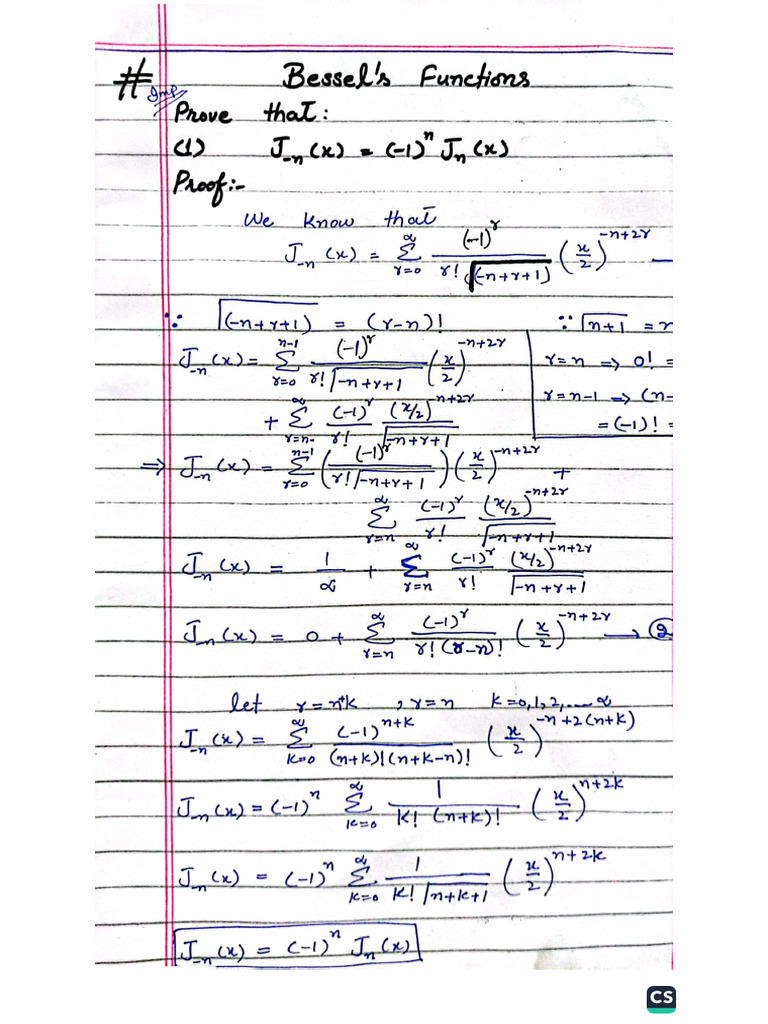 # Bessel's Functions
Imp
Prove that:
(1) J_{-n}(x) = (-1)^n J_n(x)
Proof:-
We know that
J_{-n}(x) = ∑_{r=0}^{∞} (-1)^r / (r! √(-n+r+1)) (x/2)^{-n+2r} —
∵ Γ(-n+r+1) = (r-n)! ∵ Γ(n+1) =
J_{-n}(x) = ∑_{r=0}^{n-1} (-1)^r / (r! Γ(-n+r+1)) (x/2)^{-n+2r}
r=n ⇒ 0! =
r=n-1 ⇒ (n-
+ ∑_{r=n-}^{∞} (-1)^r / r! (x/2)^{-n+2r} / Γ(-n+r+1)
= (-1)! =
⇒ J_{-n}(x) = ∑_{r=0}^{n-1} ((-1)^r / (r! Γ(-n+r+1))) (x/2)^{-n+2r} +
∑_{r=n}^{∞} (-1)^r / r! (x/2)^{-n+2r} / Γ(-n+r+1)
J_{-n}(x) = 1/∞ + ∑_{r=n}^{∞} (-1)^r / r! (x/2)^{-n+2r} / Γ(-n+r+1)
J_{-n}(x) = 0 + ∑_{r=n}^{∞} (-1)^r / (r! (r-n)!) (x/2)^{-n+2r} → ②
let r = n+k , r=n k=0,1,2,....∞
J_{-n}(x) = ∑_{k=0}^{∞} (-1)^{n+k} / ((n+k)! (n+k-n)!) (x/2)^{-n+2(n+k)}
J_{-n}(x) = (-1)^n ∑_{k=0}^{∞} 1 / (k! (n+k)!) (x/2)^{n+2k}
J_{-n}(x) = (-1)^n ∑_{k=0}^{∞} 1 / (k! Γ(n+k+1)) (x/2)^{n+2k}
J_{-n}(x) = (-1)^n J_n(x)
CS